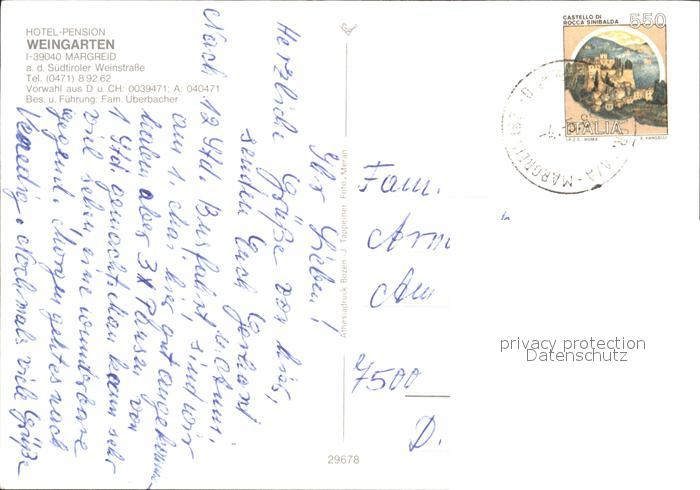 HOTEL-PENSION
WEINGARTEN
I-39040 MARGREID
a. d. Südtiroler Weinstraße
Tel. (0471) 8 92 62
Vorwahl aus D u. CH: 0039471; A: 040471
Bes. u. Führung: Fam. Überbacher
Ihr Lieben!
Herzliche Grüße von hier,
senden Euch
Nach 12 Std. Busfahrt, sind wir
am 1. hier gut angekommen
haben aber 3 x Pausen von
1 Std. gemacht. Man kann sehr
viel sehen, eine wunderbare
Gegend. Morgen geht es nach
Venedig. Nochmals viele Grüße
Athesiadruck Bozen - J. Tappeiner Foto - Meran
29678
CASTELLO DI
ROCCA SINIBALDA
550
ITALIA
I.P.Z.S. ROMA
E. VANGELLI
MARGREID
Fam.
7500
D.
privacy protection
Datenschutz